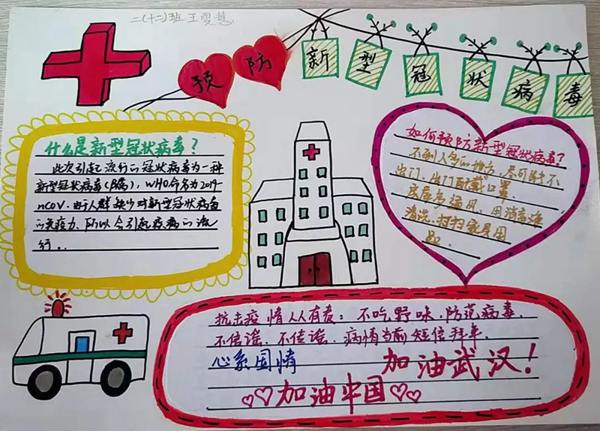 二(十二)班 王
预防新型冠状病毒
什么是新型冠状病毒?
此次引起流行的冠状病毒为一种
新型冠状病毒(B属), WHO命名为2019-
nCOV. 由于人群缺少对新型冠状病毒
的免疫力,所以会引起疾病的流
行。
如何预防新型冠状病毒?
不到人多的地方,尽可能不
出门,出门配戴口罩。
房屋多通风,用消毒液
清洗、扫扫家具用
品。
抗击疫情人人有责:不吃野味,防范病毒,
不信谣,不传谣,病情当前短信拜年
心系国情
加油武汉!
加油中国